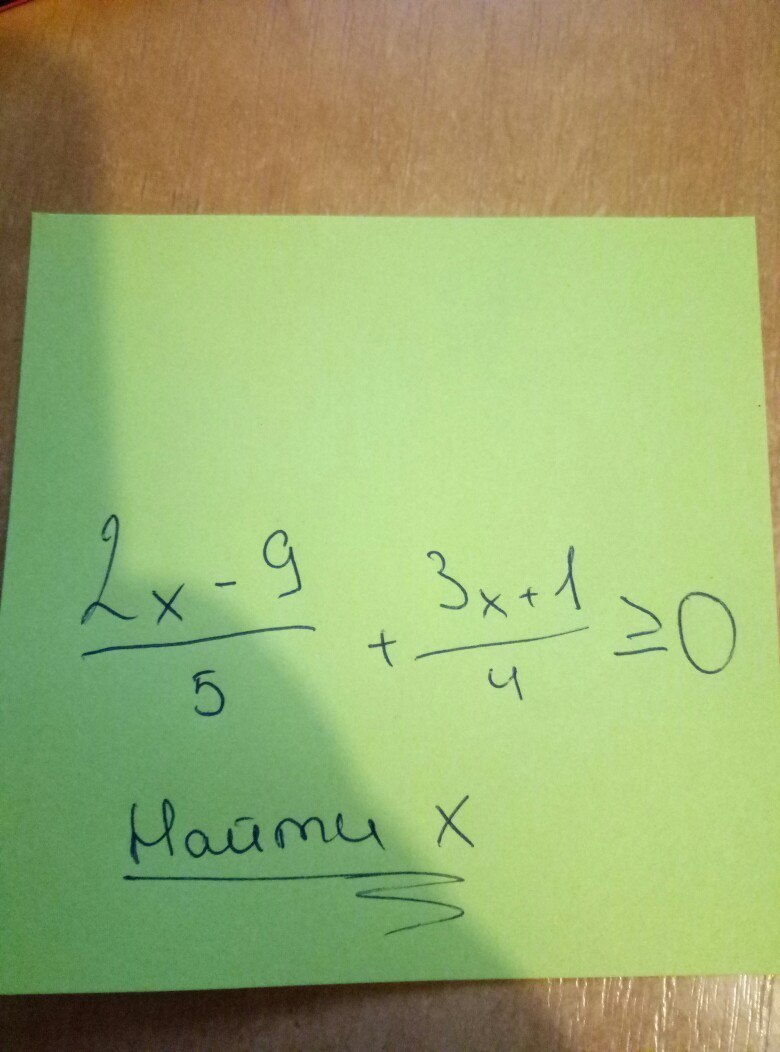 (2x - 9)/5 + (3x + 1)/4 ≥ 0
Найти x